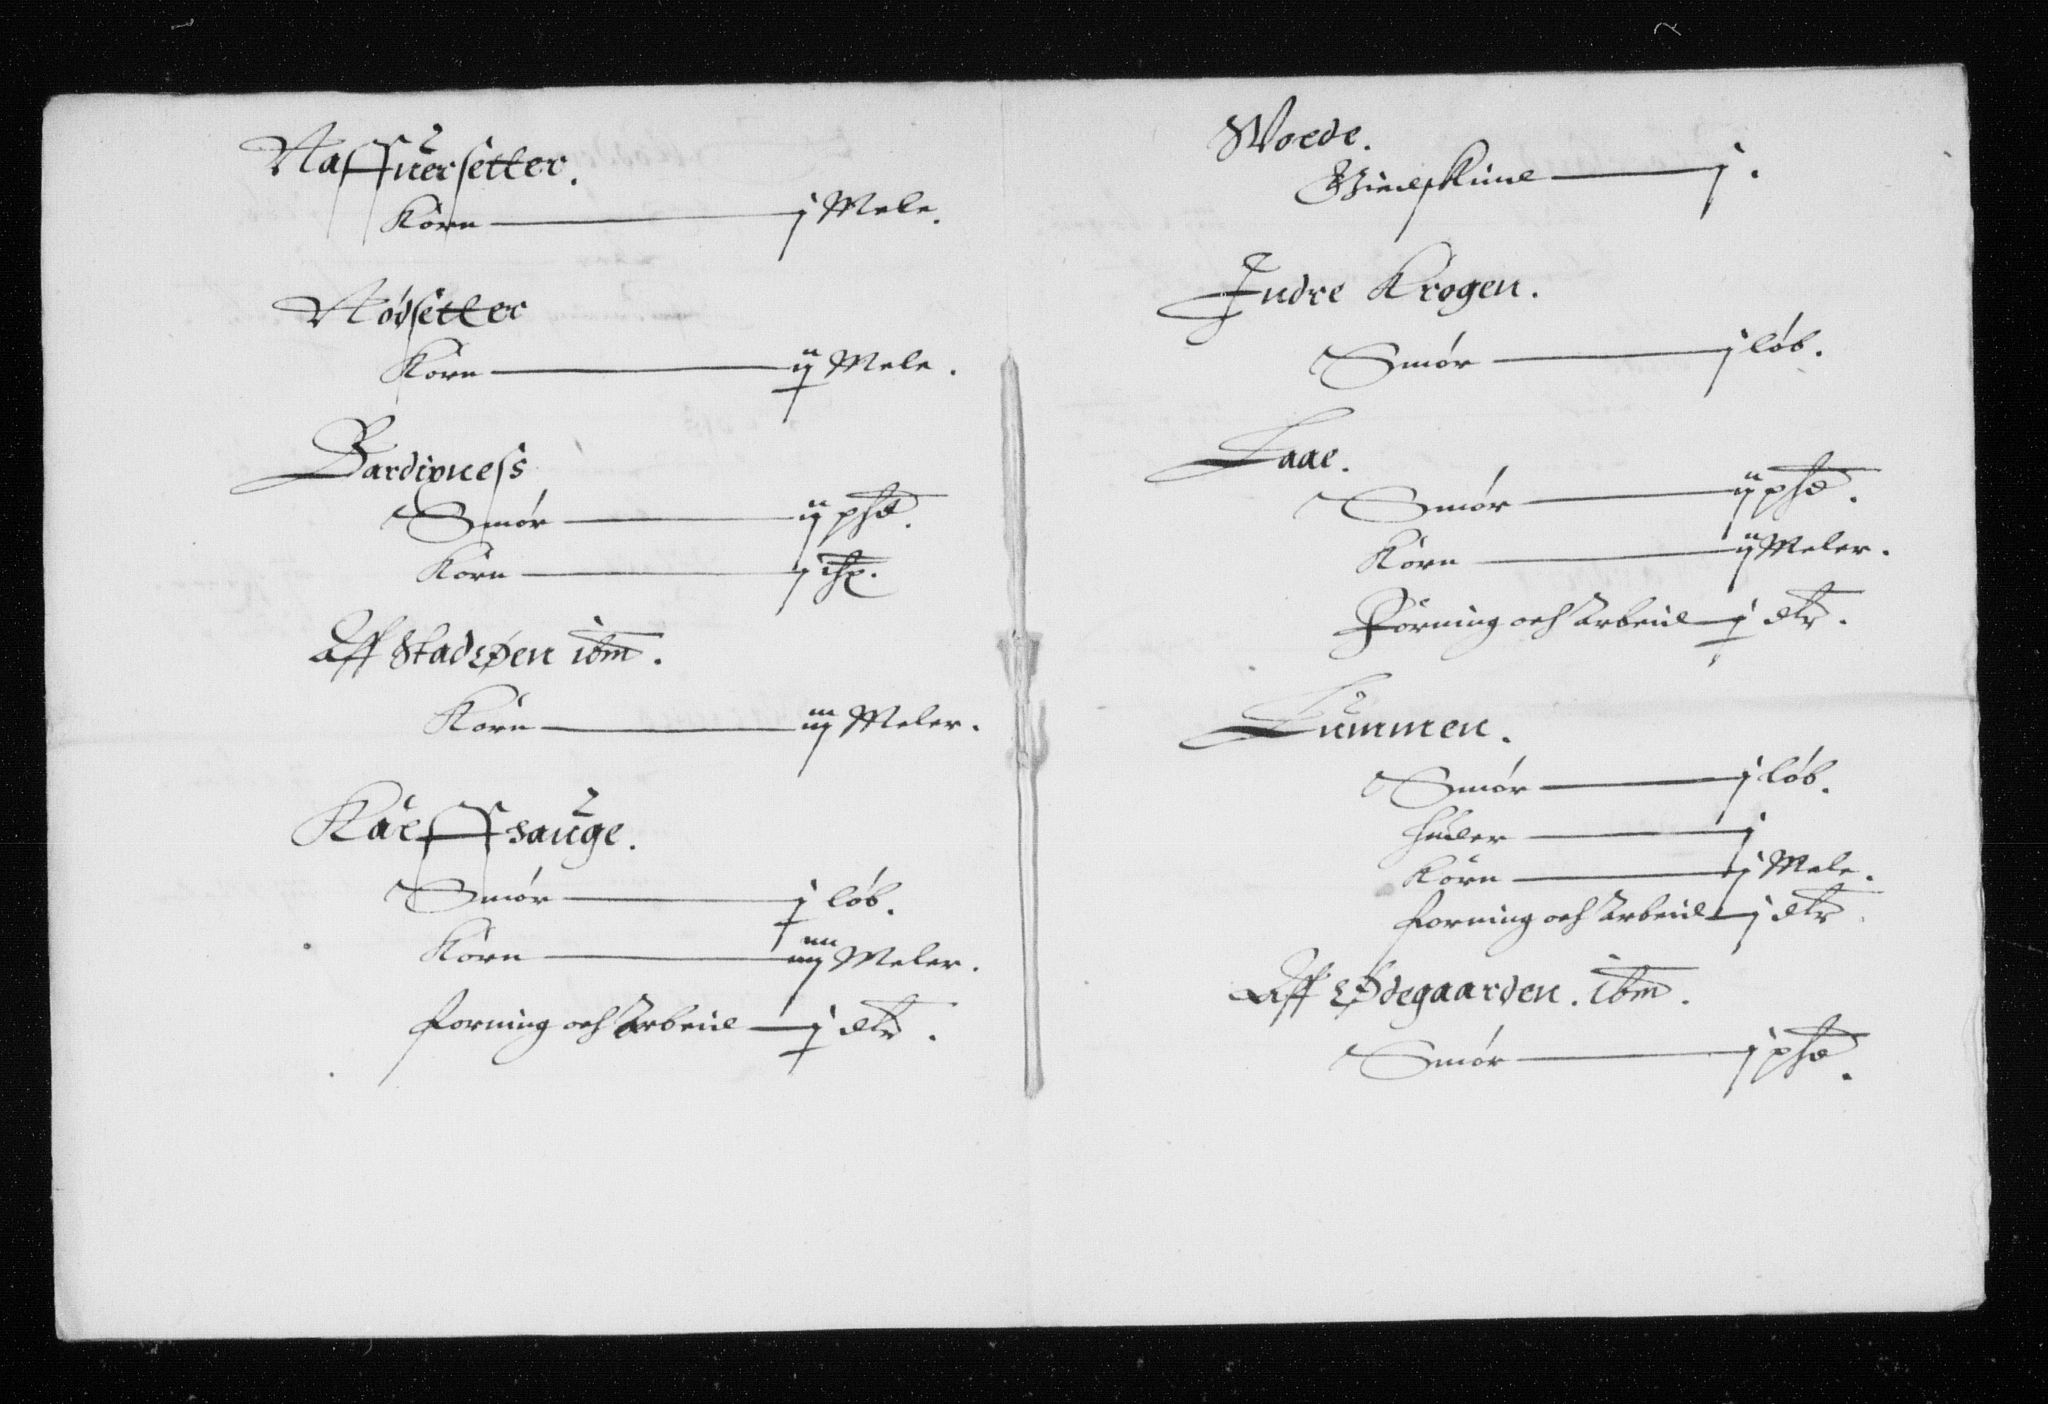 Naffuersetter.
Korn — j Mele.
Nødsetter
Korn — ij Mele.
Bardipness
Smør — ij pħd.
Korn — j
Aff Stadsøen ibm.
Korn — iij Meler.
Kalffsauge.
Smør — j løb.
Korn — iiij Meler.
forning och Arbeid — j dlr.
Woede.
Giedskind — j.
Indre Krogen.
Smør — j løb.
Laae.
Smør — ij pħd.
Korn — ij Meler.
Forning och Arbeid — j dlr.
Lummen.
Smør — j løb.
Huder — j
Korn — j Mele.
forning och Arbeid — j dlr
Aff Ødegaarden. Ibm.
Smør — j pħd.